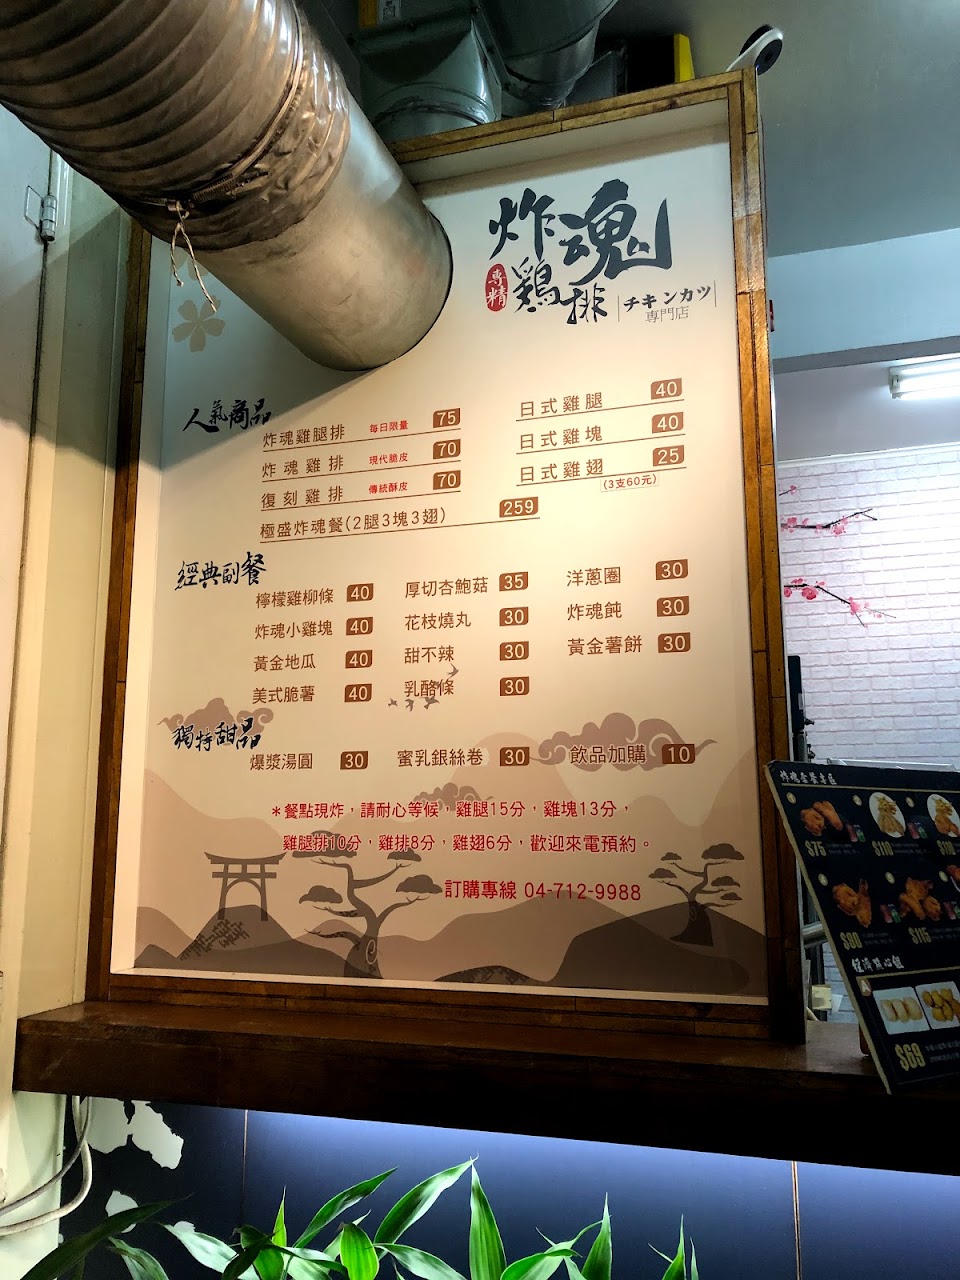 炸魂
專精 雞排 チキンカツ
専門店
人氣商品
炸魂雞腿排 每日限量 75
炸魂雞排 現代脆皮 70
復刻雞排 傳統酥皮 70
極盛炸魂餐(2腿3塊3翅) 259
日式雞腿 40
日式雞塊 40
日式雞翅 25
(3支60元)
經典副餐
檸檬雞柳條 40
炸魂小雞塊 40
黃金地瓜 40
美式脆薯 40
厚切杏鮑菇 35
花枝燒丸 30
甜不辣 30
乳酪條 30
洋蔥圈 30
炸魂飩 30
黃金薯餅 30
獨特甜品
爆漿湯圓 30
蜜乳銀絲卷 30
飲品加購 10
*餐點現炸，請耐心等候，雞腿15分，雞塊13分，
雞腿排10分，雞排8分，雞翅6分，歡迎來電預約。
訂購專線 04-712-9988
$75 $110 $110
$90 $115
$69